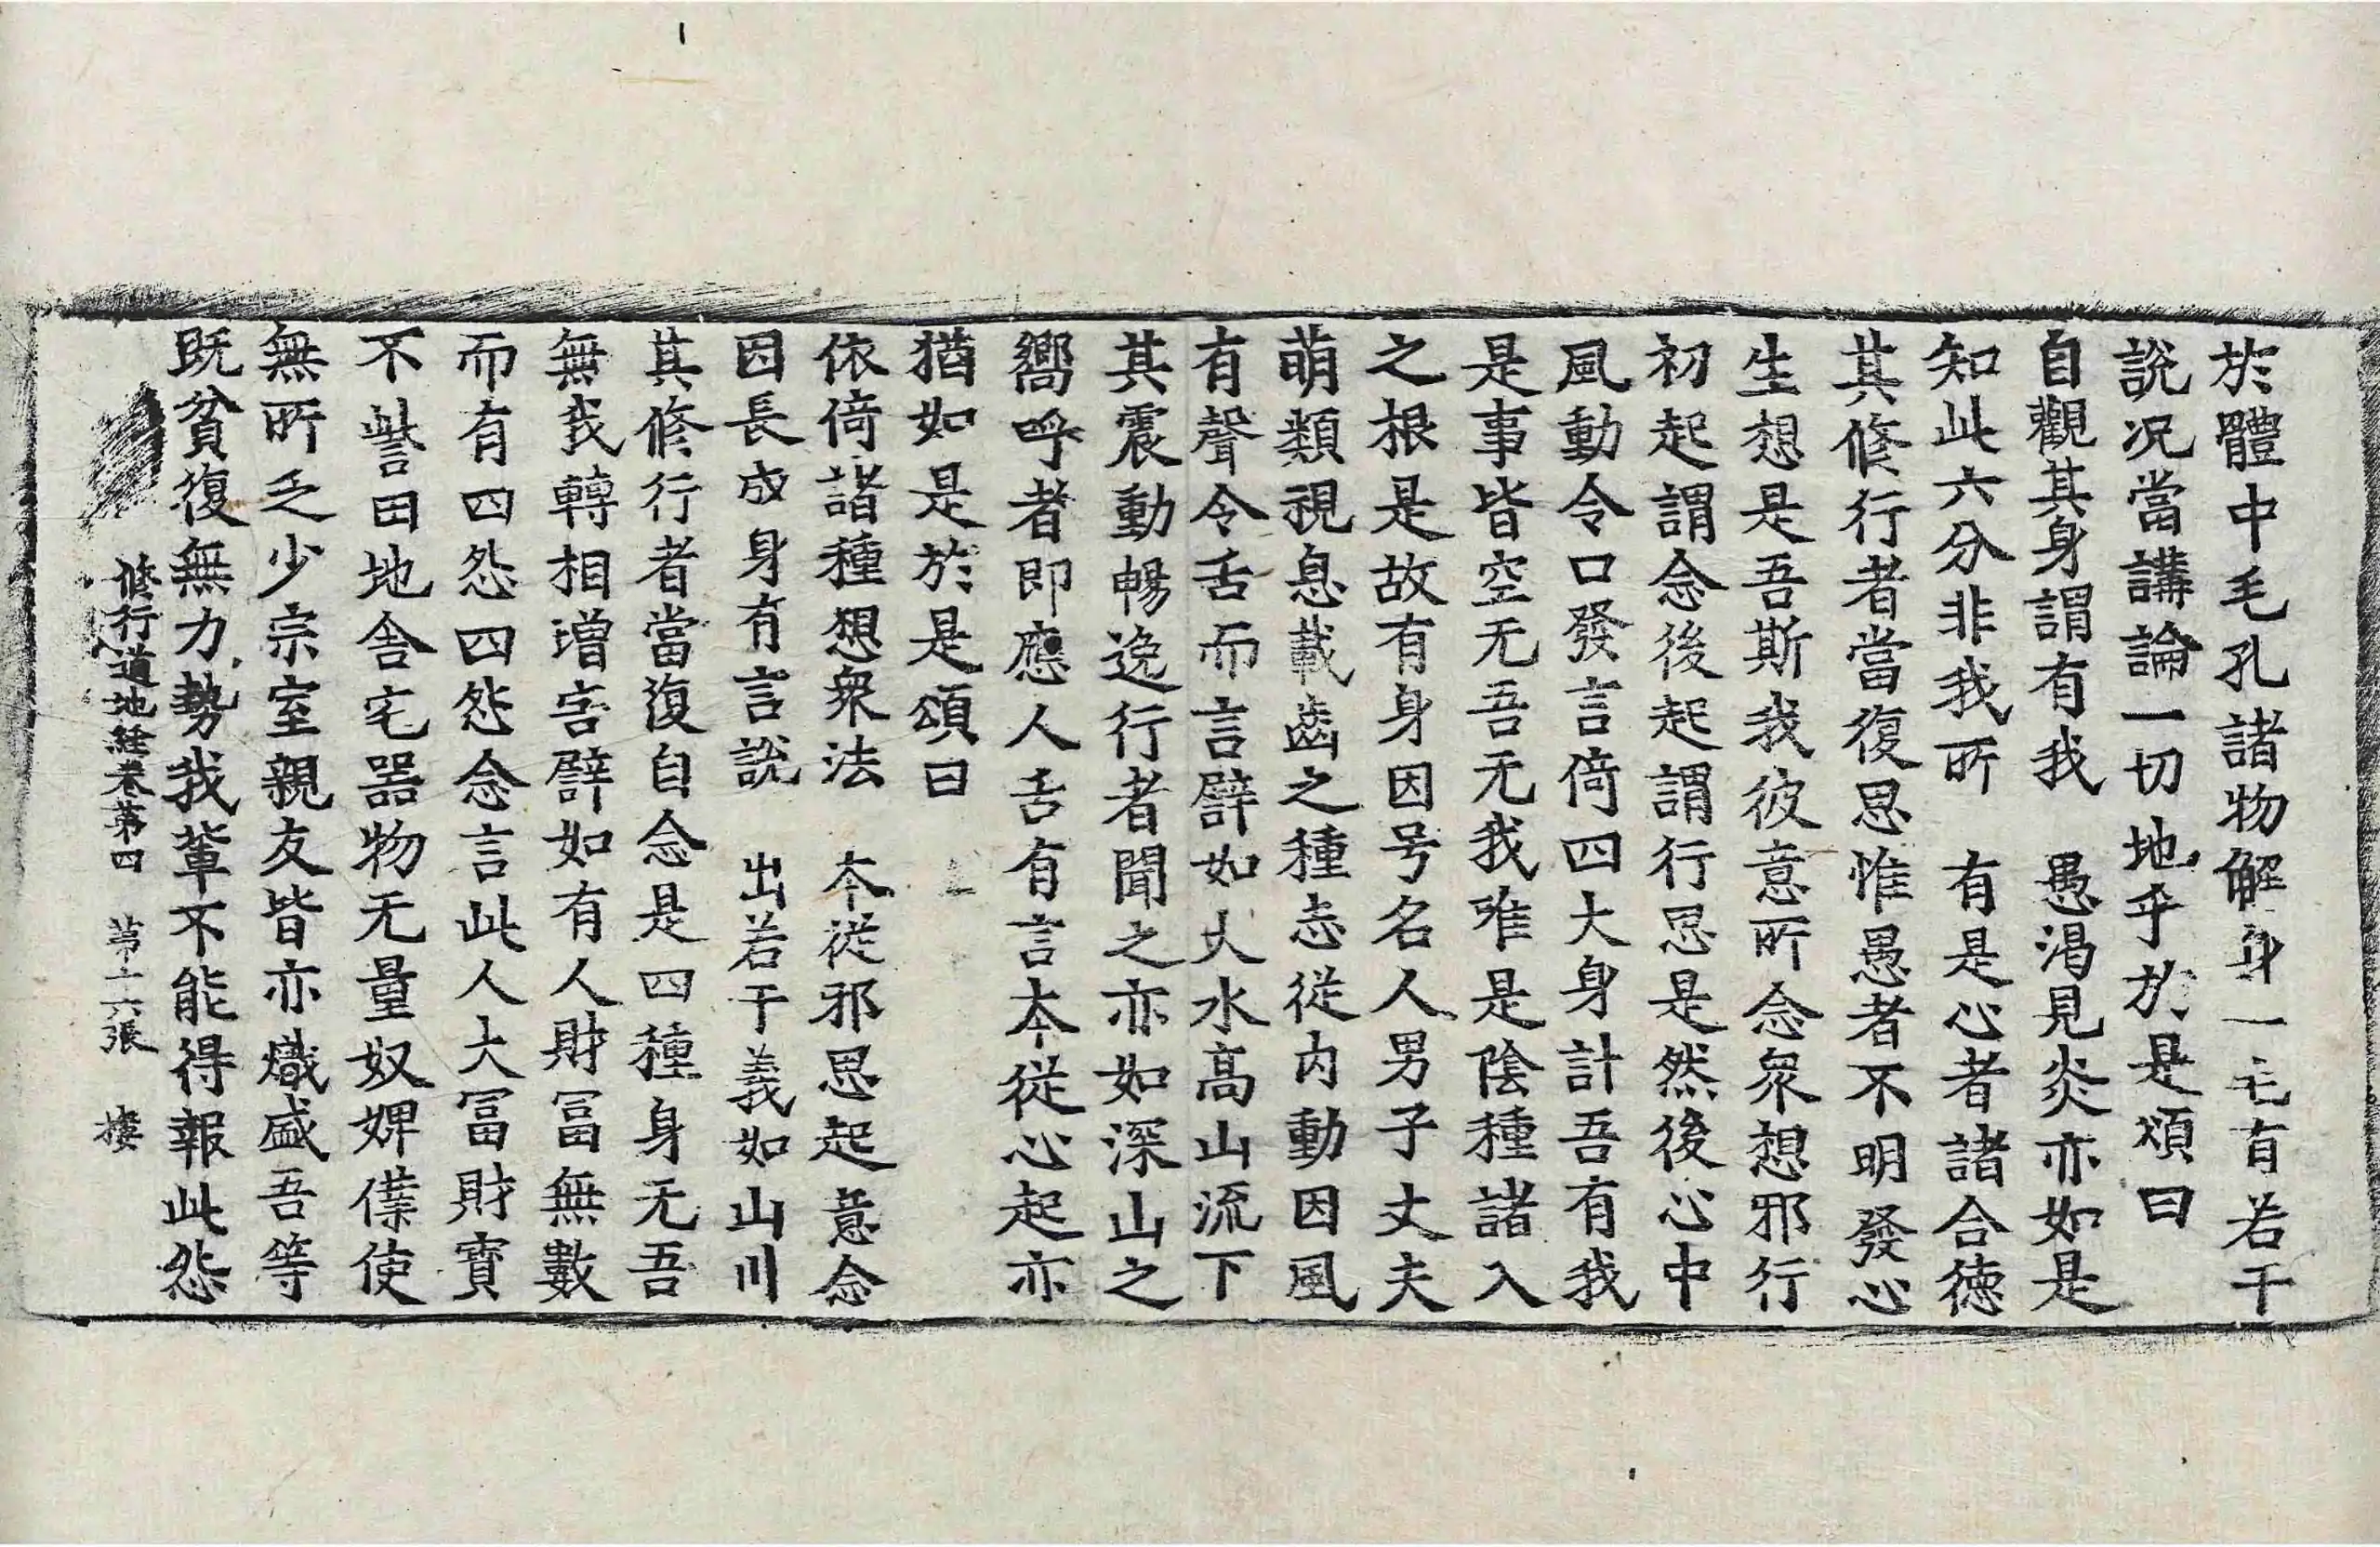 於體中毛孔諸物解身一毛有若干
說况當講論一切地乎於是頌曰
自觀其身謂有我　愚渴見炎亦如是
知此六分非我所　有是心者諸合德
其修行者當復思惟愚者不明發心
生想是吾斯我彼意所念衆想邪行
初起謂念後起謂行思是然後心中
風動令口發言倚四大身計吾有我
是事皆空无吾无我唯是陰種諸入
之根是故有身因号名人男子丈夫
萌類視息載齒之種志從内動因風
有聲令舌而言譬如大水高山流下
其震動暢逸行者聞之亦如深山之
嚮呼者即應人舌有言本從心起亦
猶如是於是頌曰
依倚諸種想衆法　本從邪思起意念
因長成身有言說　出若干義如山川
其修行者當復自念是四種身无吾
無我轉相增害譬如有人財冨無數
而有四怨四怨念言此人大冨財寳
不訾田地舎宅器物无量奴婢僕使
無所乏少宗室親友皆亦熾盛吾等
既貧復無力勢我輩不能得報此怨
修行道地経卷第四　苐十六張　樓